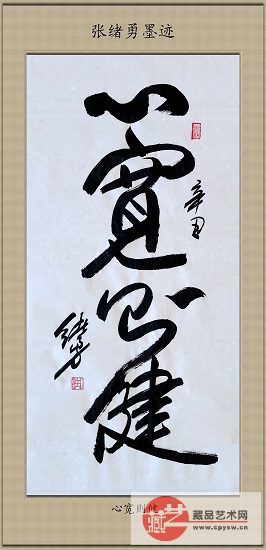 张绪勇墨迹
心寬则健
辛丑
绪勇
心宽则健
藏艺
藏品艺术网
www.cpysw.cn